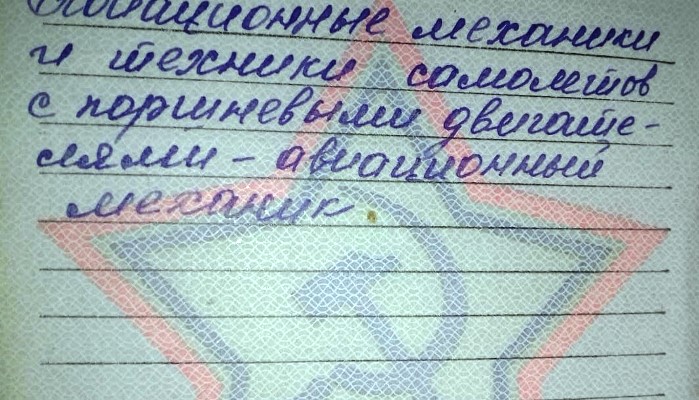 Авиационные механики
и техники самолетов
с поршневыми двигате-
лями - авиационный
механик